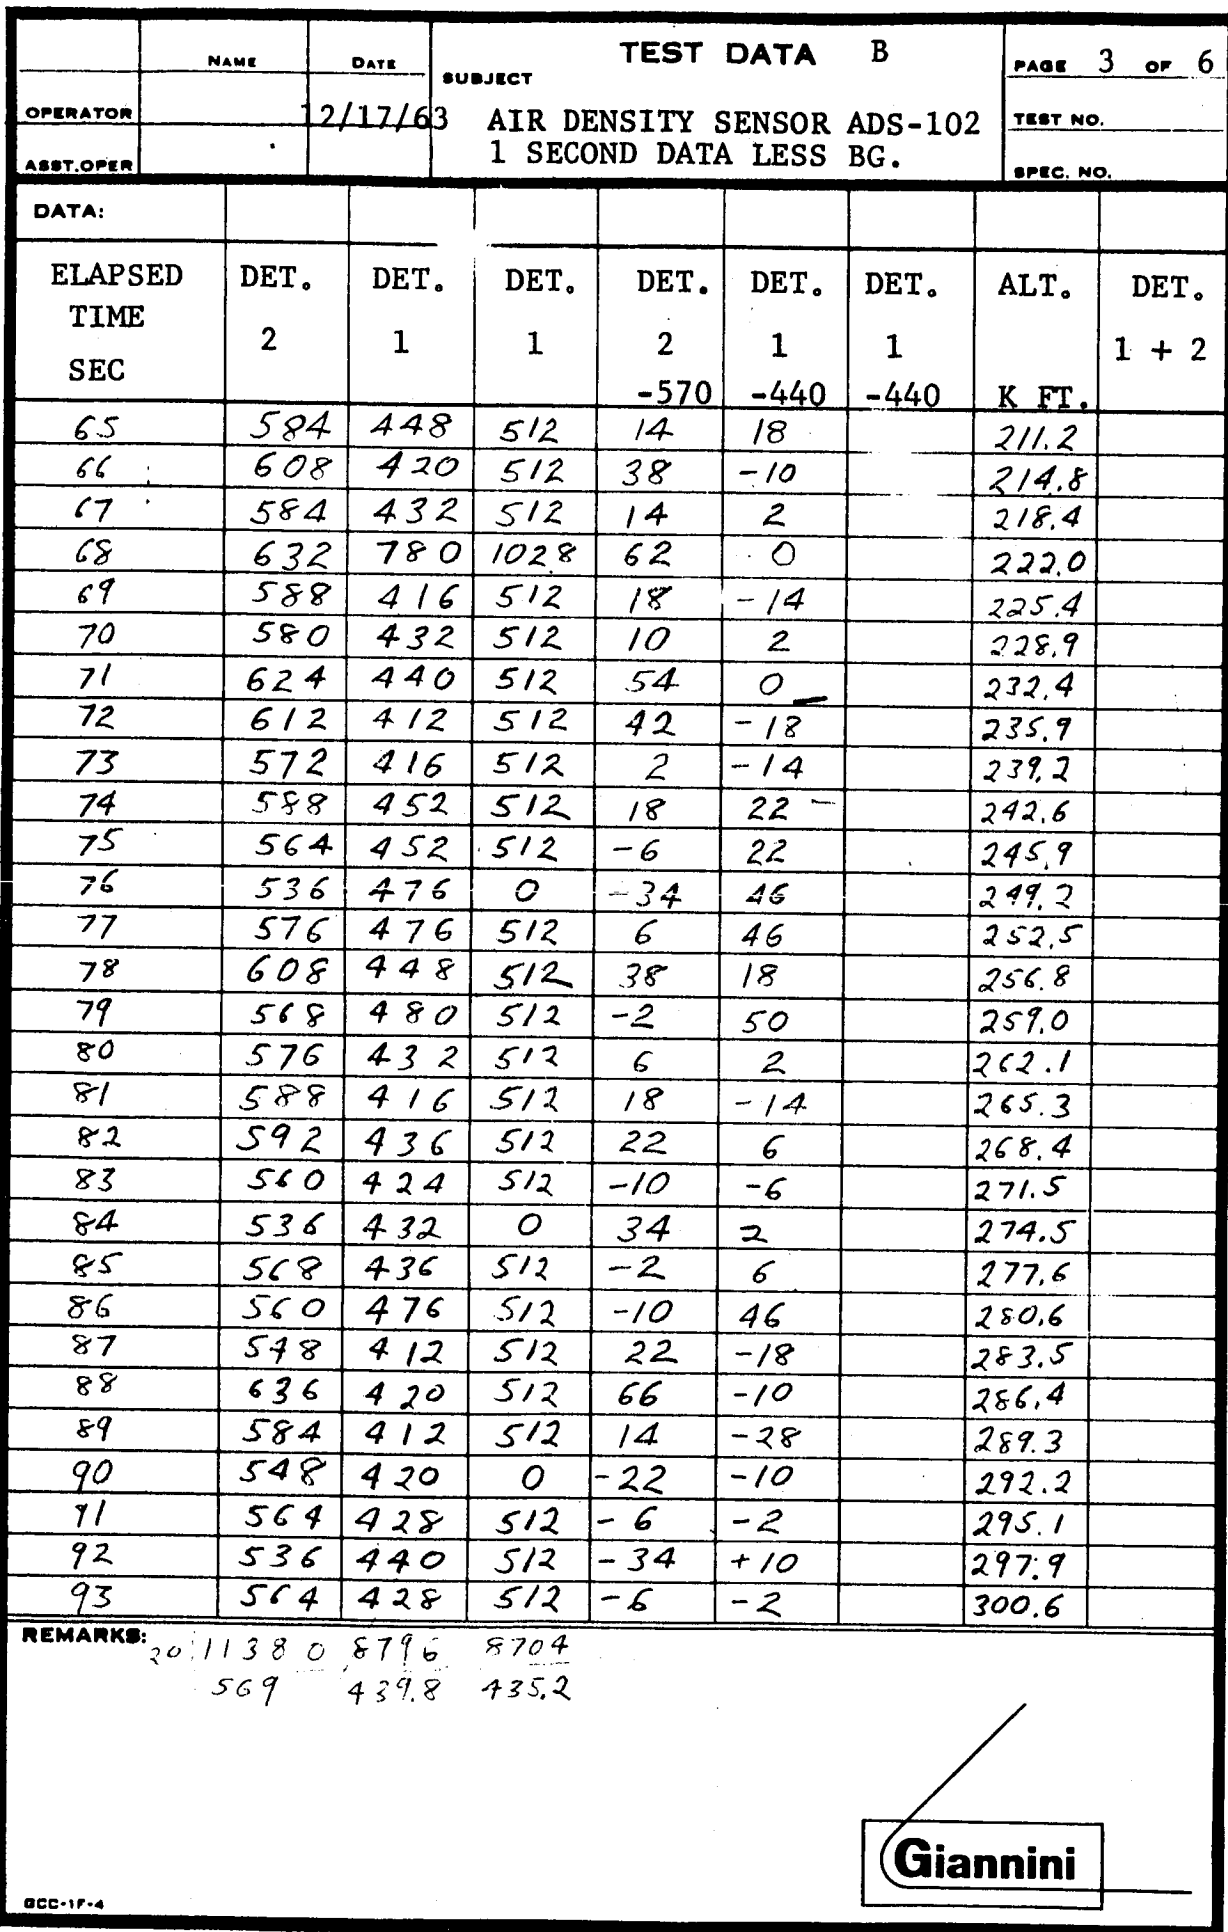 NAME DATE TEST DATA B PAGE 3 OF 6
SUBJECT
OPERATOR 12/17/63 AIR DENSITY SENSOR ADS-102 TEST NO.
1 SECOND DATA LESS BG.
ASST.OPER SPEC. NO.
DATA:
ELAPSED DET. DET. DET. DET. DET. DET. ALT. DET.
TIME 2 1 1 2 1 1 1 + 2
SEC
-570 -440 -440 K FT.
65 584 448 512 14 18 211.2
66 608 420 512 38 -10 214.8
67 584 432 512 14 2 218.4
68 632 780 1028 62 0 222.0
69 588 416 512 18 -14 225.4
70 580 432 512 10 2 228.9
71 624 440 512 54 0 232.4
72 612 412 512 42 -18 235.9
73 572 416 512 2 -14 239.2
74 588 452 512 18 22 242.6
75 564 452 512 -6 22 245.9
76 536 476 0 -34 46 249.2
77 576 476 512 6 46 252.5
78 608 448 512 38 18 256.8
79 568 480 512 -2 50 259.0
80 576 432 512 6 2 262.1
81 588 416 512 18 -14 265.3
82 592 436 512 22 6 268.4
83 560 424 512 -10 -6 271.5
84 536 432 0 34 2 274.5
85 568 436 512 -2 6 277.6
86 560 476 512 -10 46 280.6
87 548 412 512 22 -18 283.5
88 636 420 512 66 -10 286.4
89 584 412 512 14 -28 289.3
90 548 420 0 -22 -10 292.2
91 564 428 512 -6 -2 295.1
92 536 440 512 -34 +10 297.9
93 564 428 512 -6 -2 300.6
REMARKS: 20 11380 8796 8704
569 439.8 435.2
Giannini
GCC-1F-4